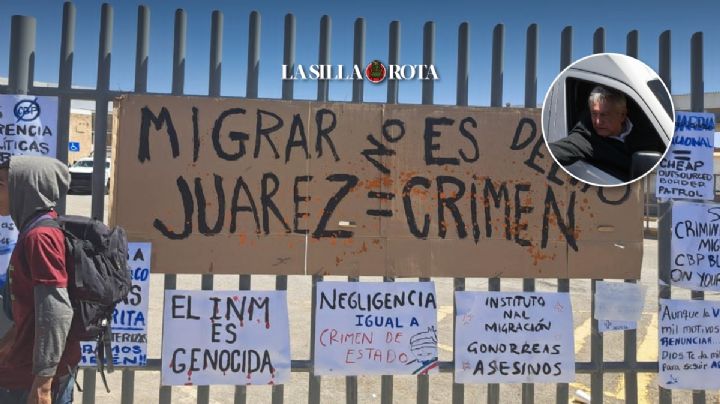 LA SILLA ROTA
MIGRAR NO ES DELITO
JUAREZ = CRIMEN
ERENCIA
OLÍTICAS
EL INM
ES
GENOCIDA
NEGLIGENCIA
IGUAL A
CRIMEN DE
ESTADO
INSTITUTO
NAL
MIGRACIÓN
GONORREAS
ASESINOS
GUARDIA
NACIONAL
=
CHEAP
OUTSOURCED
BORDER
PATROL
CRIMIN
MIG
CBP BL
ON YOUR
Aunque la V
mil motivos
RENUNCIAR...
Dios te da m
para seguir